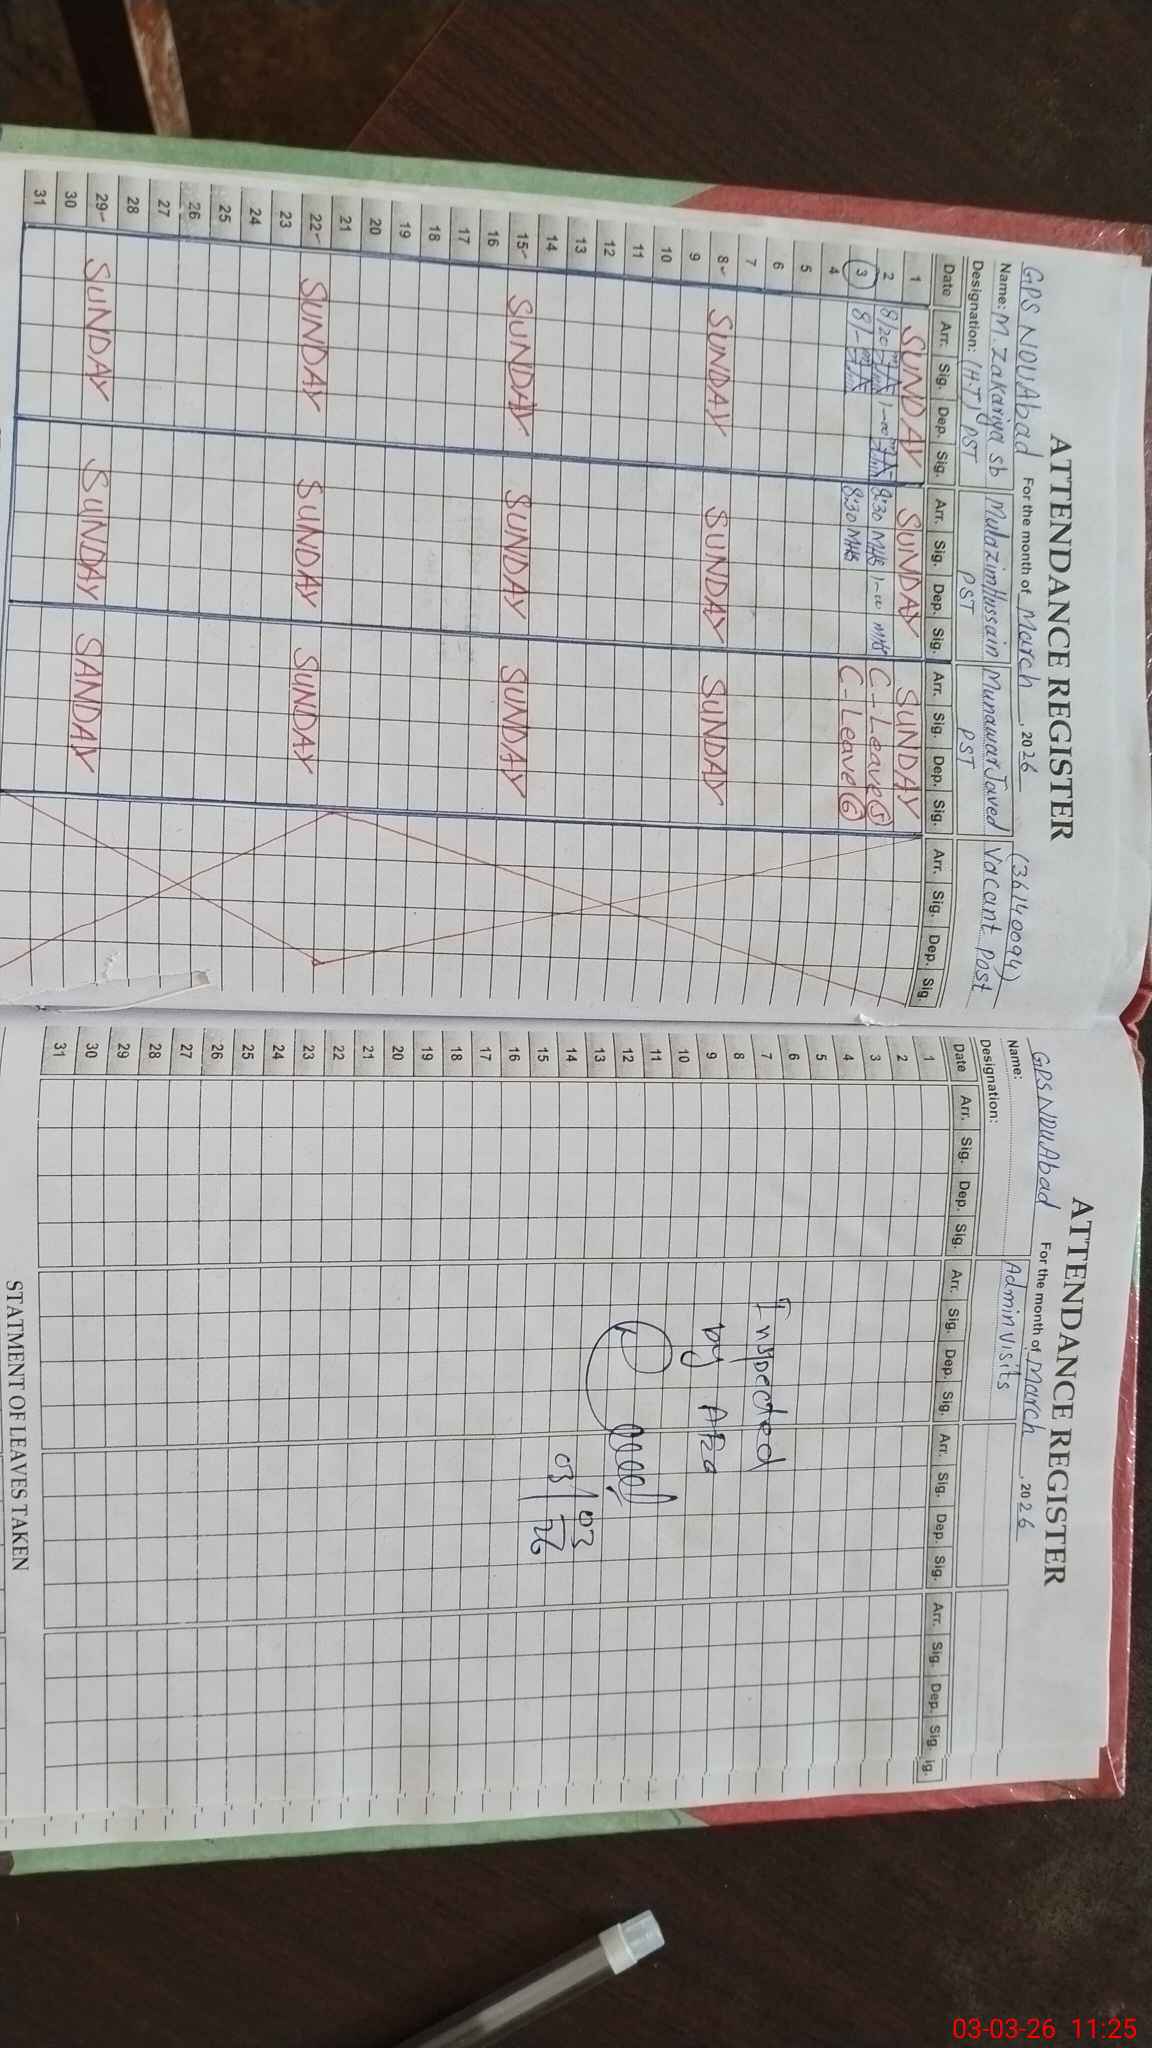 ATTENDANCE REGISTER
(36140094)
GPS NDUAbad For the month of March, 2026
Name: M. Zakariya sb Mulazim Hussain Munawar Javed Vacant Post
Designation: (H.T) PST PST PST
Date Arr. Sig. Dep. Sig. Arr. Sig. Dep. Sig. Arr. Sig. Dep. Sig. Arr. Sig. Dep. Sig.
1 SUNDAY SUNDAY SUNDAY
2 8/20 1-00 8:30 MHB 1-00 MHB C-Leave 5
3 8/- 8:30 MHB C-Leave 6
4
5
6
7
8 SUNDAY SUNDAY SUNDAY
9
10
11
12
13
14
15 SUNDAY SUNDAY SUNDAY
16
17
18
19
20
21
22 SUNDAY SUNDAY SUNDAY
23
24
25
26
27
28
29 SUNDAY SUNDAY SANDAY
30
31
ATTENDANCE REGISTER
GPS NDUAbad For the month of March, 2026
Name: Admin visits
Designation:
Date Arr. Sig. Dep. Sig. Arr. Sig. Dep. Sig. Arr. Sig. Dep. Sig. Arr. Sig. Dep. Sig. ig.
1
2
3
4
5
6
7 Inspected
8
9 by
10
11
12
13
14 03/03
15 26
16
17
18
19
20
21
22
23
24
25
26
27
28
29
30
31
STATMENT OF LEAVES TAKEN
03-03-26 11:25